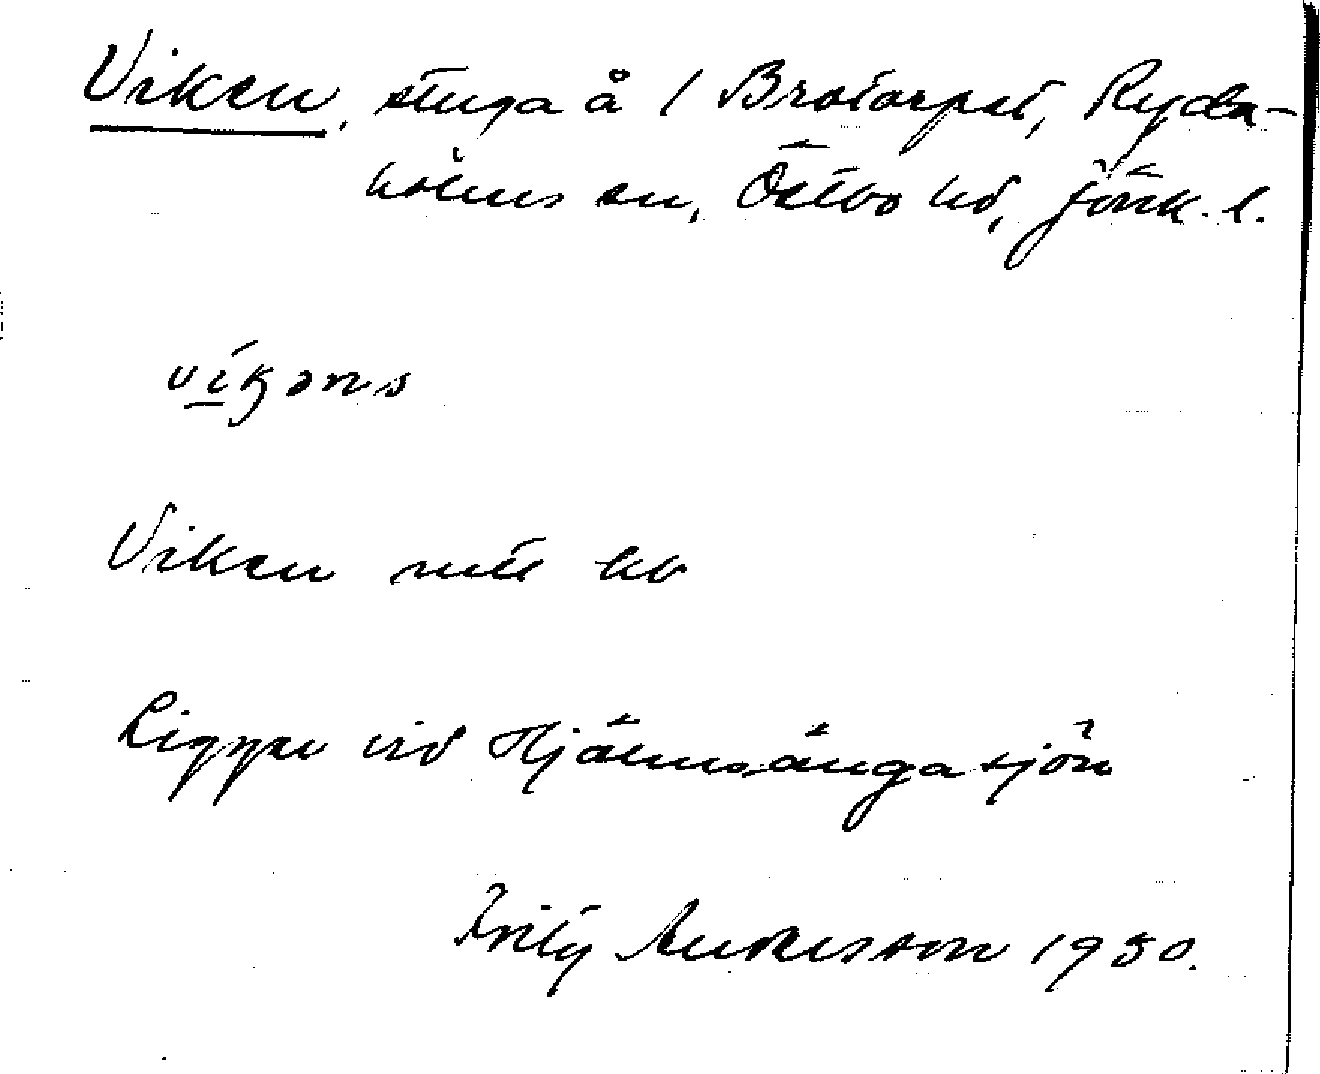 Viken, stuga å 1 Brotorpet, Ryda-
holms sn, Östbo hd, Jönk. l.
víkəns
Viken mtl kb
Ligger vid Hjälmsängasjön
Fritz Andersson 1930.